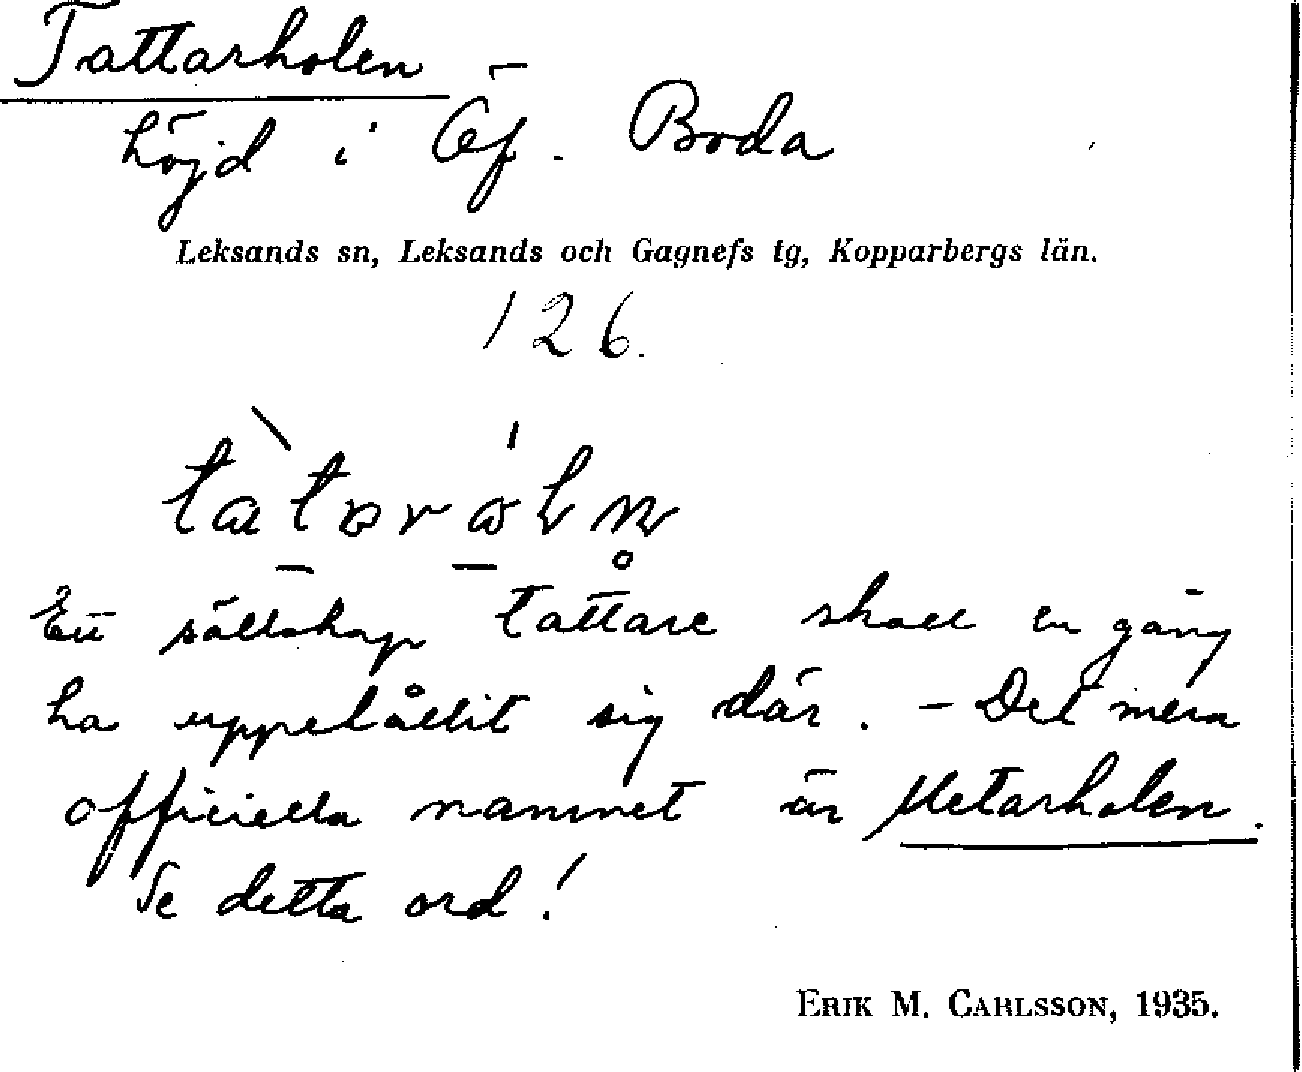 Tattarholen
höjd i Öf. Boda
Leksands sn, Leksands och Gagnefs tg, Kopparbergs län.
126.
Ett sällskap tattare skall en gång
ha uppehållit sig där. – Det mera
officiella namnet är Metarholen.
Se detta ord!
ERIK M. CARLSSON, 1935.